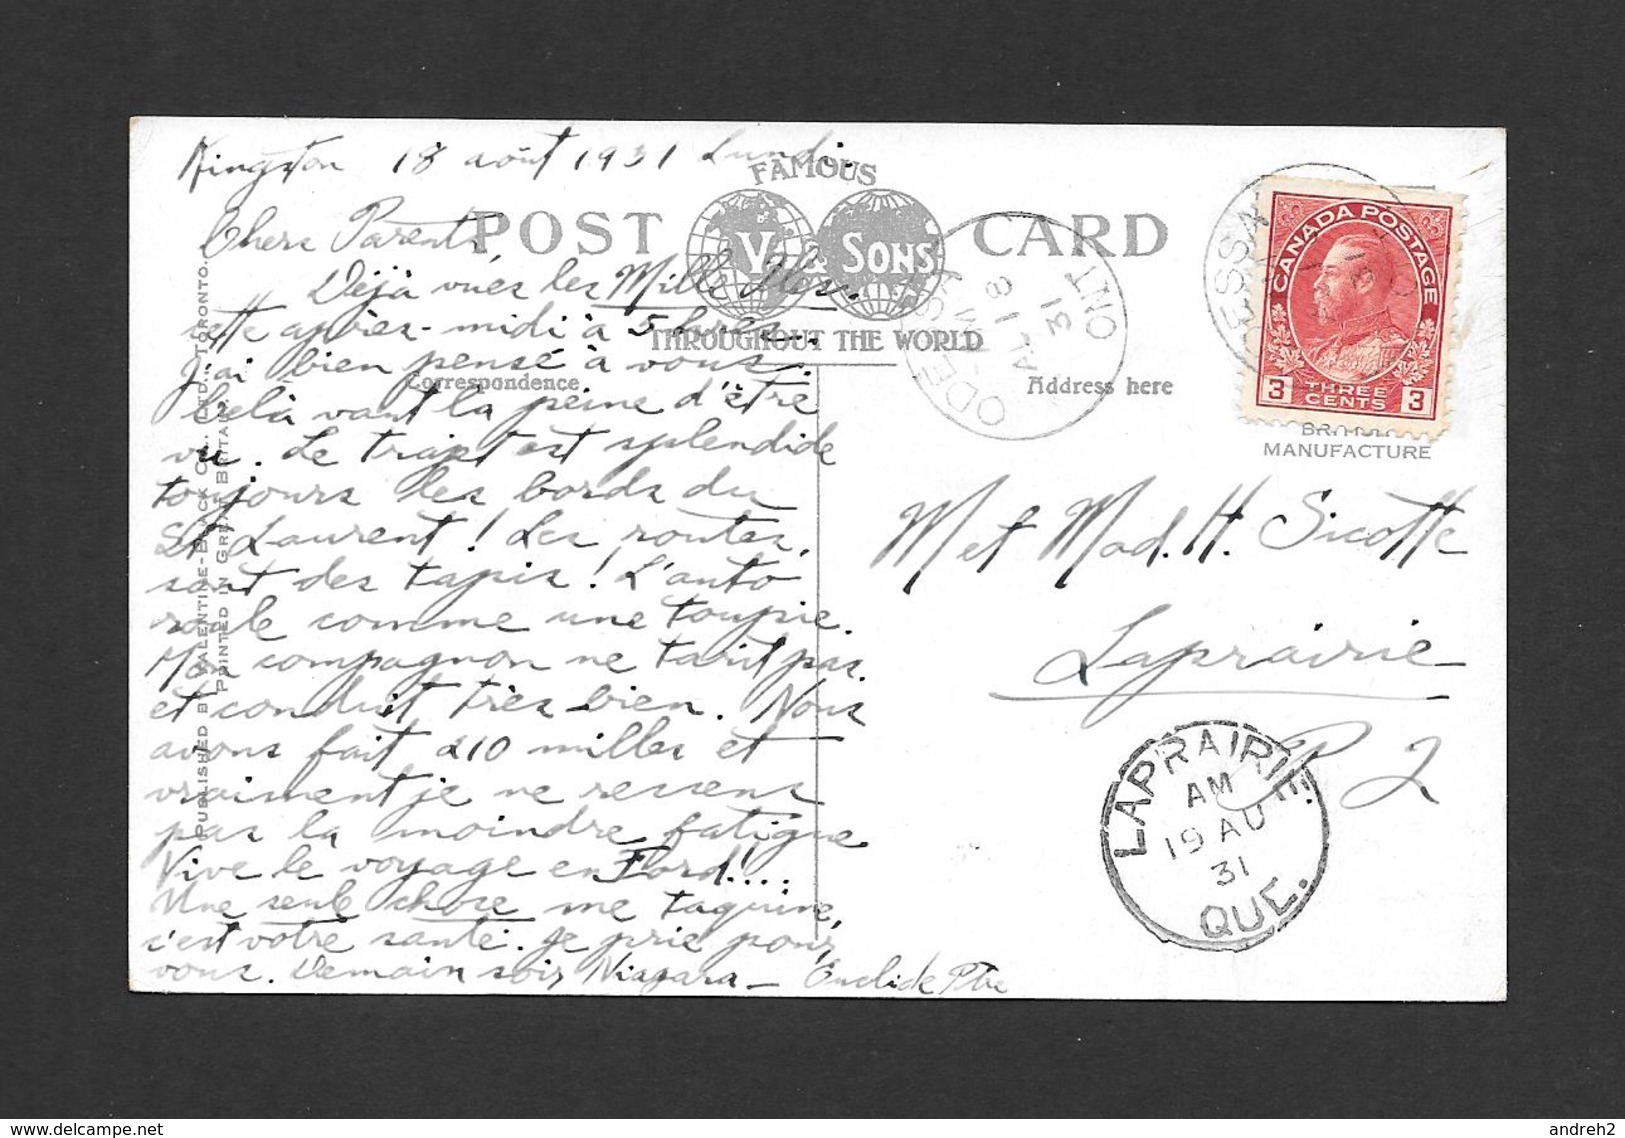 Kingston 18 août 1931 Lundi.
FAMOUS
POST CARD
V. & SONS
THROUGHOUT THE WORLD
Correspondence
Address here
Chers Parents
Déjà vués les Mille Iles.
cette après-midi à 5 hres.
J'ai bien pensé à vous.
belà vant la peine d'être
vu. Le trajet est splendide
toujours les bords du
St Laurent! Les routes,
sont des tapis! L'auto
roule comme une toupie.
Mon compagnon ne tarit pas
et conduit très bien. Nous
avons fait 210 milles et
vraiment je ne ressens
pas la moindre fatigue
Vive le voyage en Ford!....
Une seule chose me taquine,
c'est votre santé. Je prie pour
vous. Demain soir Niagara — Euclide Ptre
PUBLISHED BY VALENTINE-BLACK CO., LTD., TORONTO.
PRINTED IN GREAT BRITAIN.
ODESSA
AU 18
31
ONT
CANADA POSTAGE
3 THREE CENTS 3
MANUFACTURE
M et Mad. H. Sicotte
Laprairie
P 2
LAPRAIRIE
AM
19 AU
31
QUE.
delcampe.net
andreh2